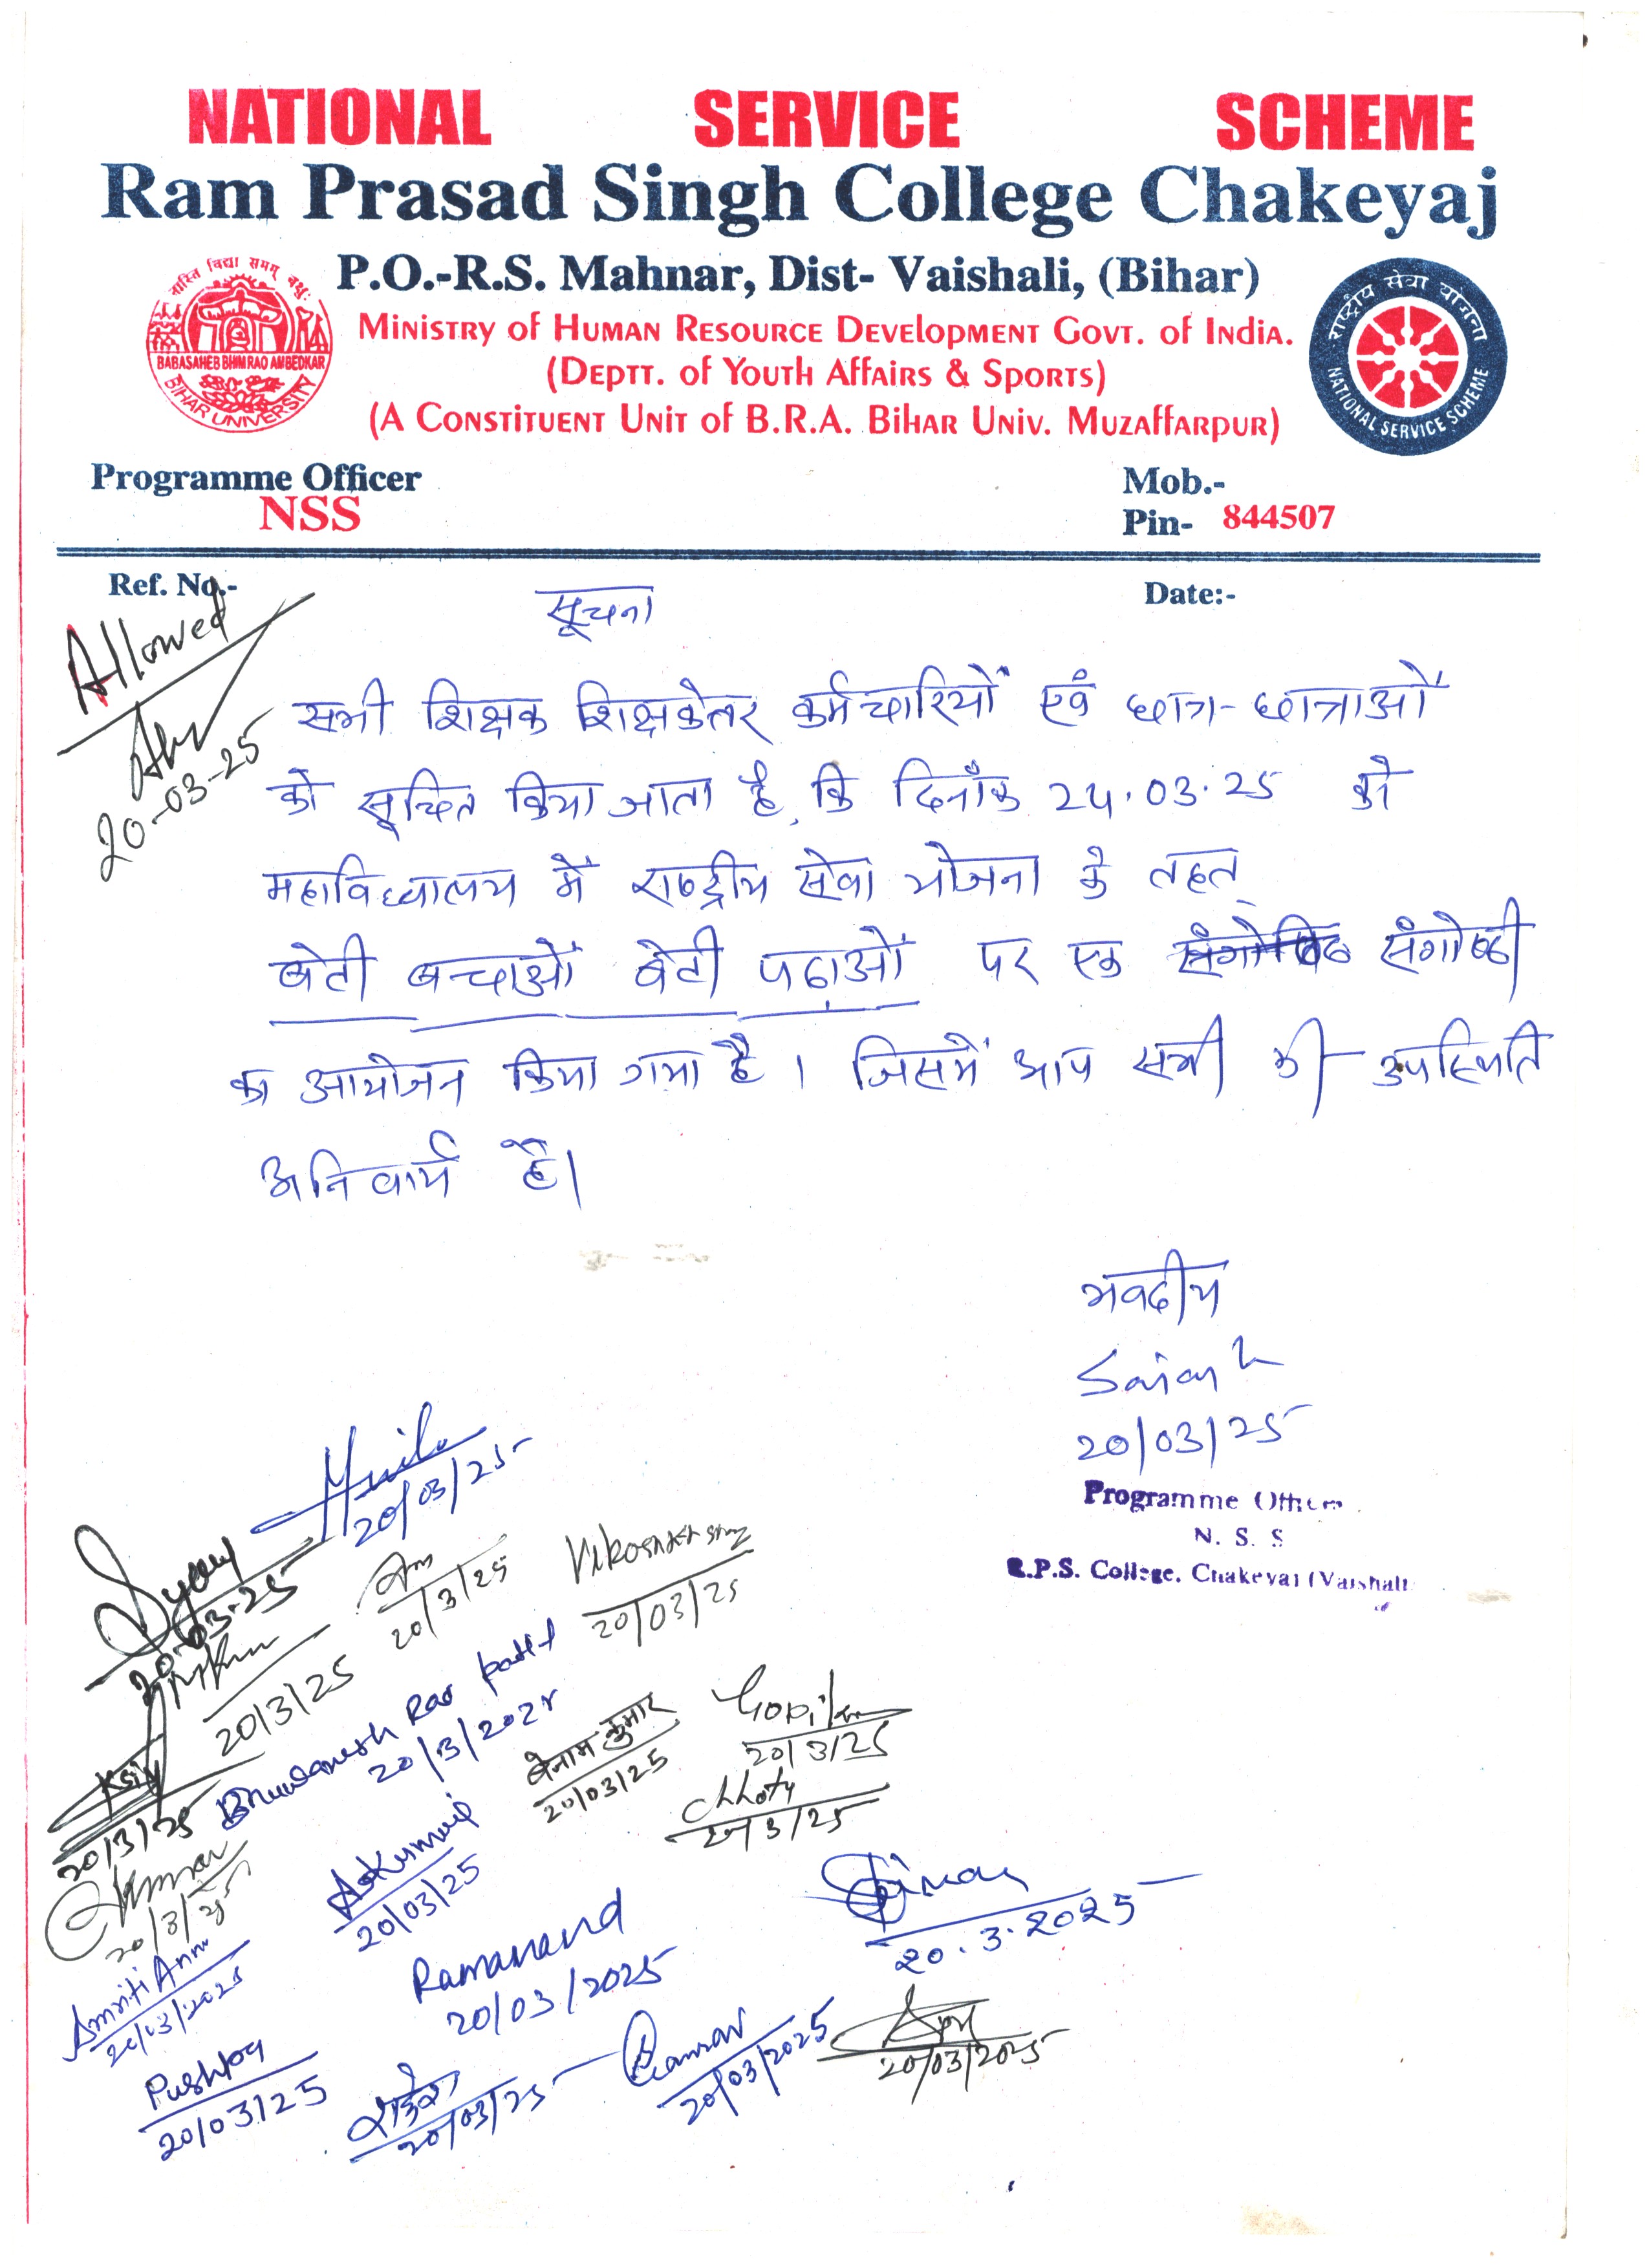 NATIONAL SERVICE SCHEME
Ram Prasad Singh College Chakeyaj
P.O.-R.S. Mahnar, Dist- Vaishali, (Bihar)
Ministry of Human Resource Development Govt. of India.
(Deptt. of Youth Affairs & Sports)
(A Constituent Unit of B.R.A. Bihar Univ. Muzaffarpur)
नास्ति विद्या समम् वक्षुः
BABASAHEB BHIMRAO AMBEDKAR
BIHAR UNIVERSITY
राष्ट्रीय सेवा योजना
NATIONAL SERVICE SCHEME
Programme Officer
NSS
Mob.-
Pin- 844507
Ref. No.-
Date:-
Allowed
20-03-25
सूचना
सभी शिक्षक शिक्षकेतर कर्मचारियों एवं छात्र-छात्राओं
को सूचित किया जाता है, कि दिनाँक 24.03.25 को
महाविध्यालय में राष्ट्रीय सेवा योजना के तहत
बेटी बच्चाओं बेटी पढ़ाओं पर एक संगोष्ठी
का आयोजन किया गया है । जिसमें आप सभी की उपस्थिति
अनिवार्य है।
भवदीय
20/03/25
Programme Officer
N. S. S
R.P.S. College. Chakeyaj (Vaishali)
20/03/25
20-03-25
20/3/25
Vikash
20/03/25
20/3/25
Bhuwanesh Rao patel
20/3/2025
20/3/25
बेनाम कुमार
20/03/25
Gopi
20/3/25
Chhotu
20/3/25
Kumar
20/3/25
20/03/25
Ramanand
20/03/2025
20.3.2025
Amriti Annu
20/03/2025
Pushpa
20/03/25
20/03/25
20/03/2025
20/03/2025